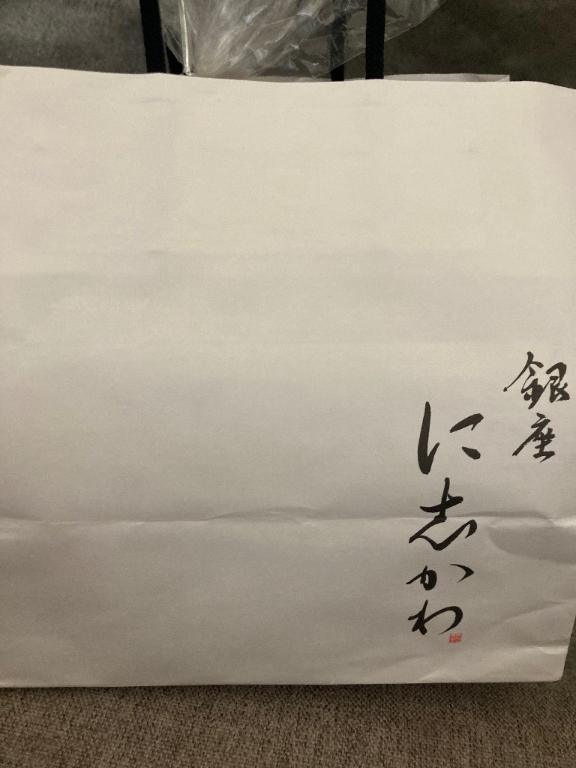 銀座
に志かわ